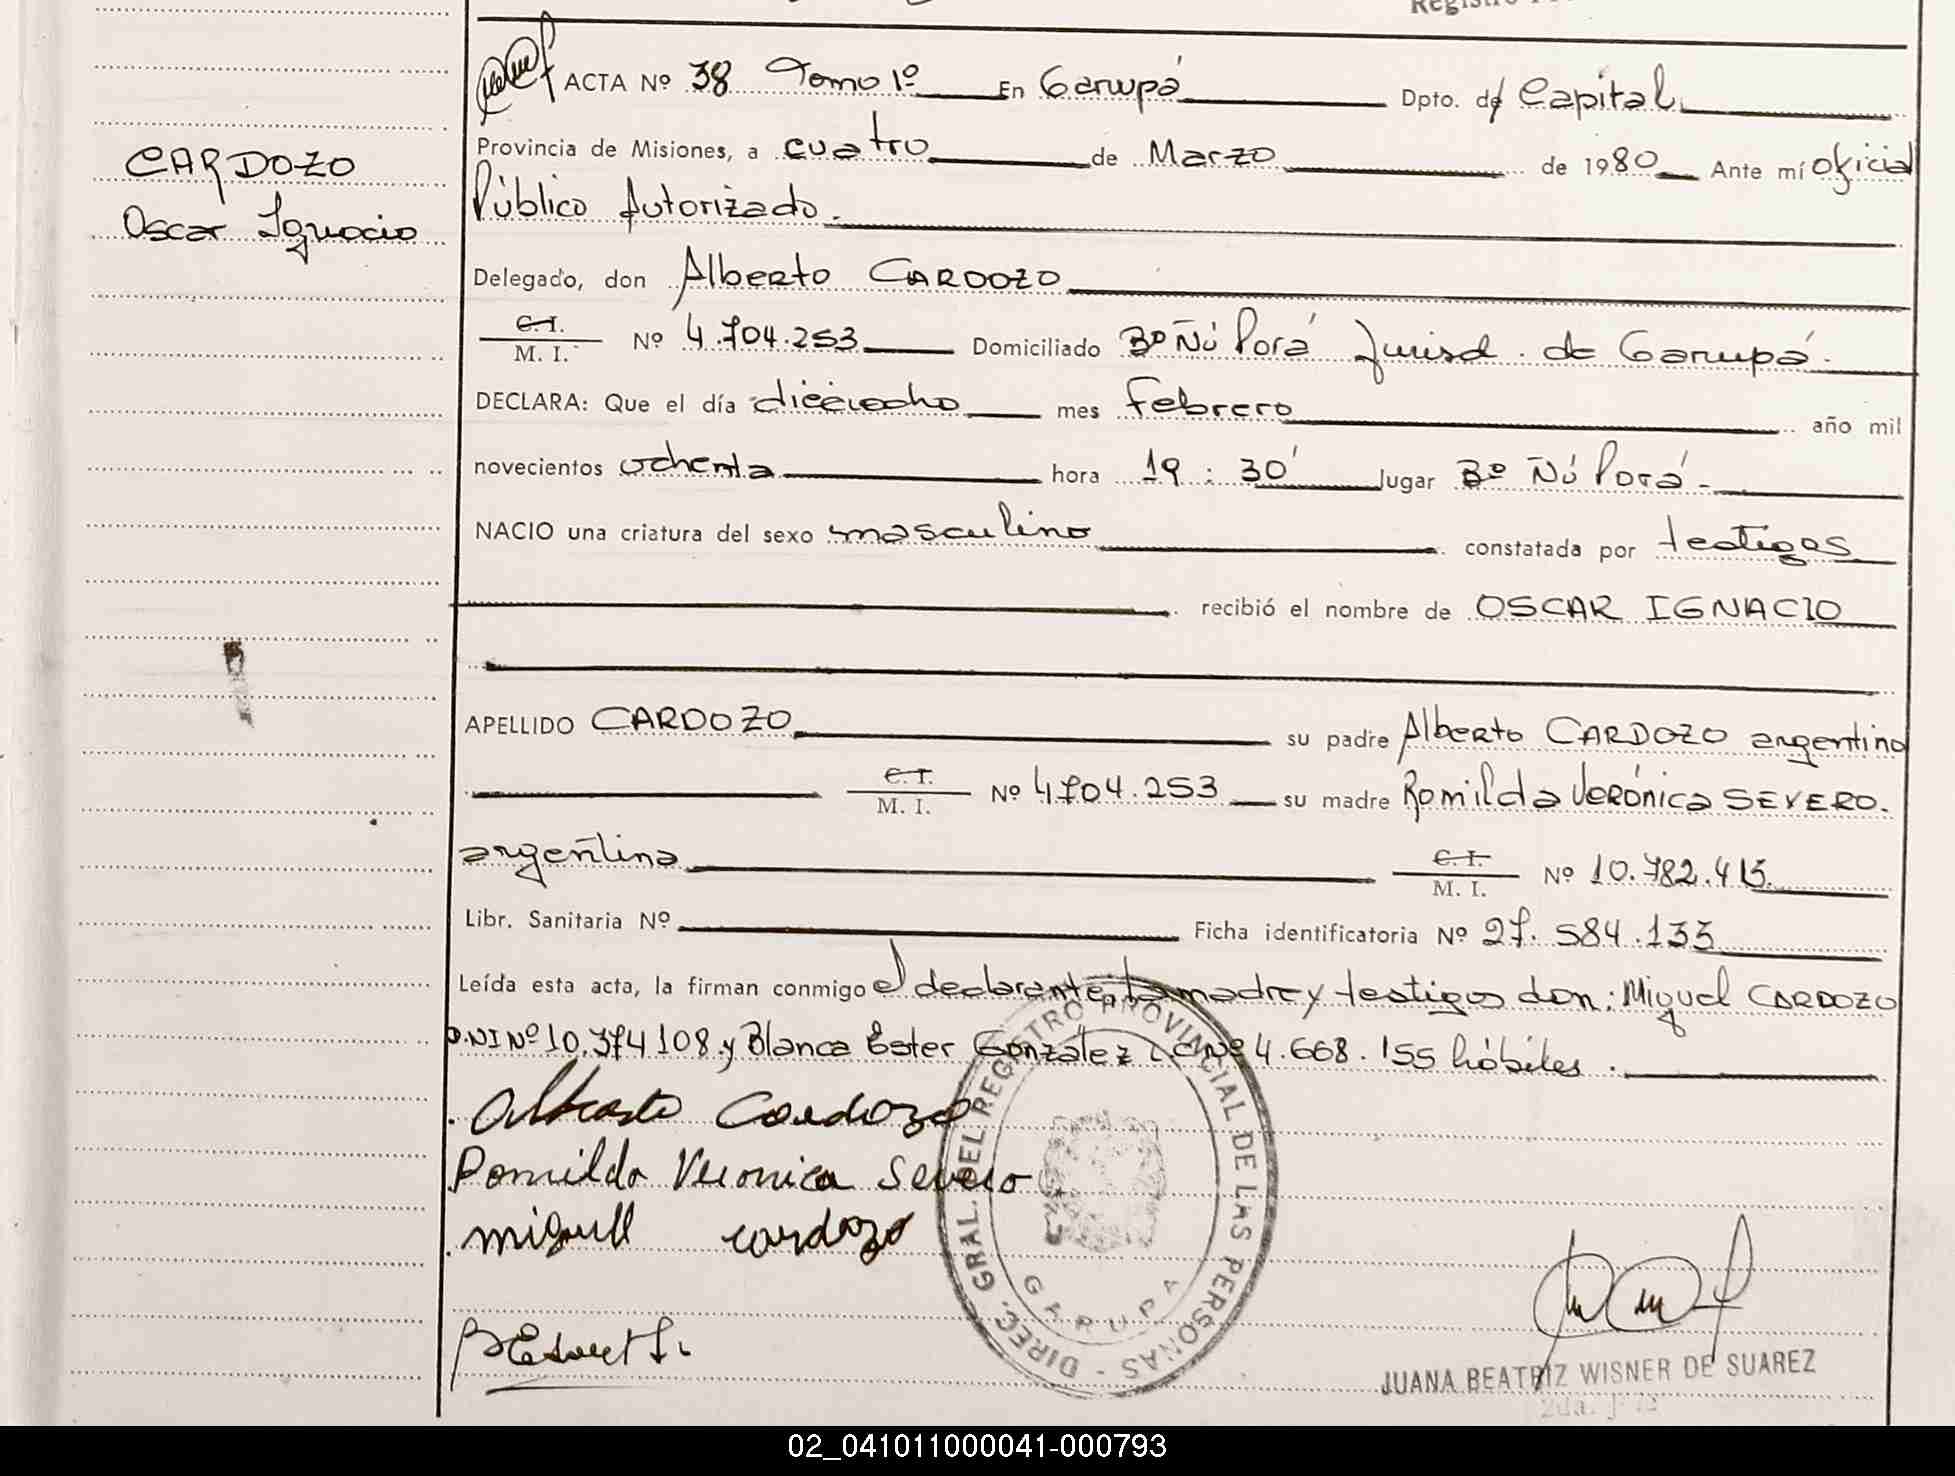 ACTA Nº 38 Tomo 1º En Garupá Dpto. de Capital
Provincia de Misiones, a cuatro de Marzo de 1980 Ante mí oficial
CARDOZO
Público Autorizado.
Oscar Ignacio
Delegado, don Alberto CARDOZO
C.I. / M. I. Nº 4.704.253 Domiciliado Bº Ñú Porá Jurisd. de Garupá.
DECLARA: Que el día dieciocho mes Febrero año mil
novecientos ochenta hora 19:30' lugar Bº Ñú Porá.
NACIO una criatura del sexo masculino constatada por testigos
recibió el nombre de OSCAR IGNACIO
APELLIDO CARDOZO su padre Alberto CARDOZO argentino
C.I. / M. I. Nº 4704.253 su madre Romilda Verónica SEVERO.
argentina C.I. / M. I. Nº 10.782.413
Libr. Sanitaria Nº Ficha identificatoria Nº 27.584.133
Leída esta acta, la firman conmigo el declarante, la madre y testigos don: Miguel CARDOZO
D.NI Nº 10.374108 y Blanca Ester González L.C Nº 4.668.155 hábiles.
Alberto Cardozo
Romilda Veronica Severo
miguell cardozo
DIREC. GRAL. DEL REGISTRO PROVINCIAL DE LAS PERSONAS -
GARUPA
JUANA BEATRIZ WISNER DE SUAREZ
02_041011000041-000793